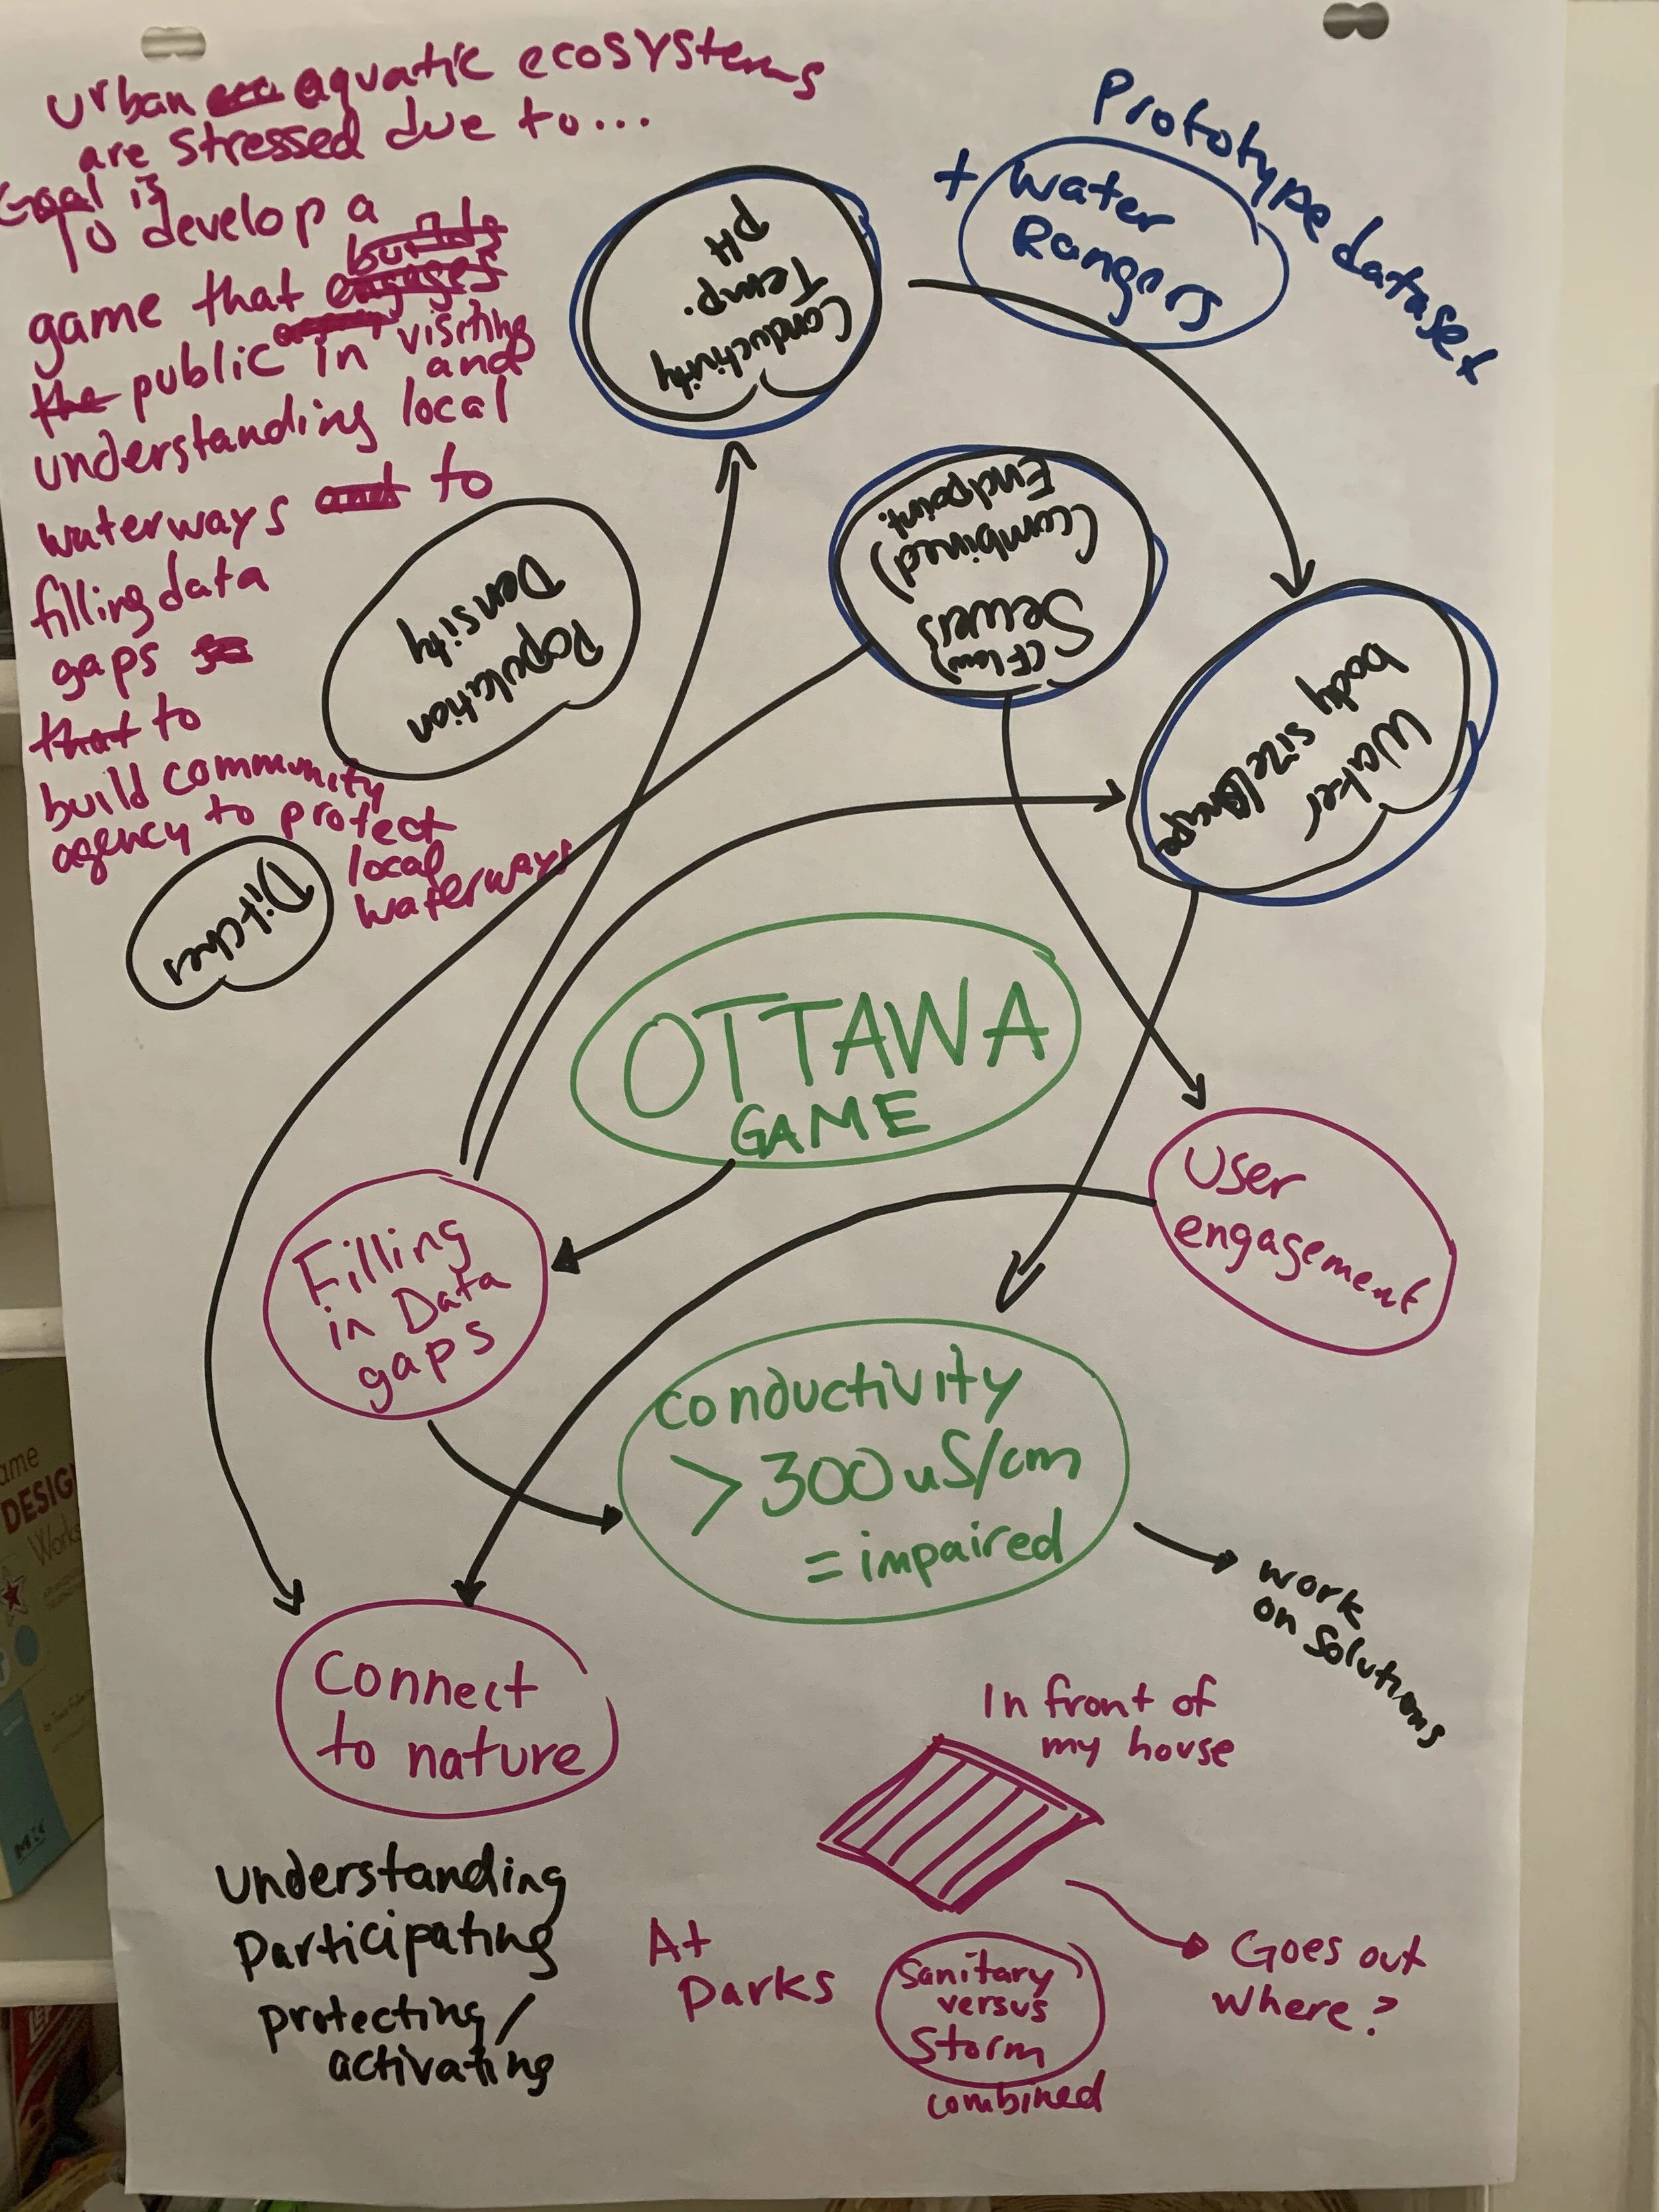 urban aquatic ecosystems
are stressed due to...
Goal is
To develop a
builds
game that engages
the public in visiting
and
understanding local
waterways and to
filling data
gaps so
that to
build community
agency to protect
local
waterways
Prototype dataset
+ Water
Rangers
Conductivity
Temp.
pH
(Flow)
Sewers
(Combined)
Endpoint.
Population
Density
Water
body size/
Ditches
OTTAWA
GAME
User
engagement
Filling
in Data
gaps
conductivity
> 300 uS/cm
= impaired
work
on solutions
Connect
to nature
In front of
my house
understanding
Participating
protecting/
activating
At
parks
Sanitary
versus
Storm
combined
Goes out
where?
ame
DESIG
Works